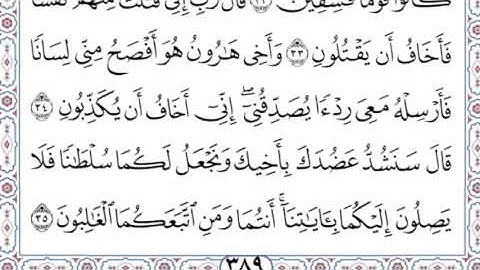 كَانُوا۟ قَوْمًا فَـٰسِقِينَ ٣٢ قَالَ رَبِّ إِنِّى قَتَلْتُ مِنْهُمْ نَفْسًا
فَأَخَافُ أَن يَقْتُلُونِ ٣٣ وَأَخِى هَـٰرُونُ هُوَ أَفْصَحُ مِنِّى لِسَانًا
فَأَرْسِلْهُ مَعِىَ رِدْءًا يُصَدِّقُنِىٓ ۖ إِنِّىٓ أَخَافُ أَن يُكَذِّبُونِ ٣٤
قَالَ سَنَشُدُّ عَضُدَكَ بِأَخِيكَ وَنَجْعَلُ لَكُمَا سُلْطَـٰنًا فَلَا
يَصِلُونَ إِلَيْكُمَا بِـَٔايَـٰتِنَآ ۚ أَنتُمَا وَمَنِ ٱتَّبَعَكُمَا ٱلْغَـٰلِبُونَ ٣٥
٣٨٩